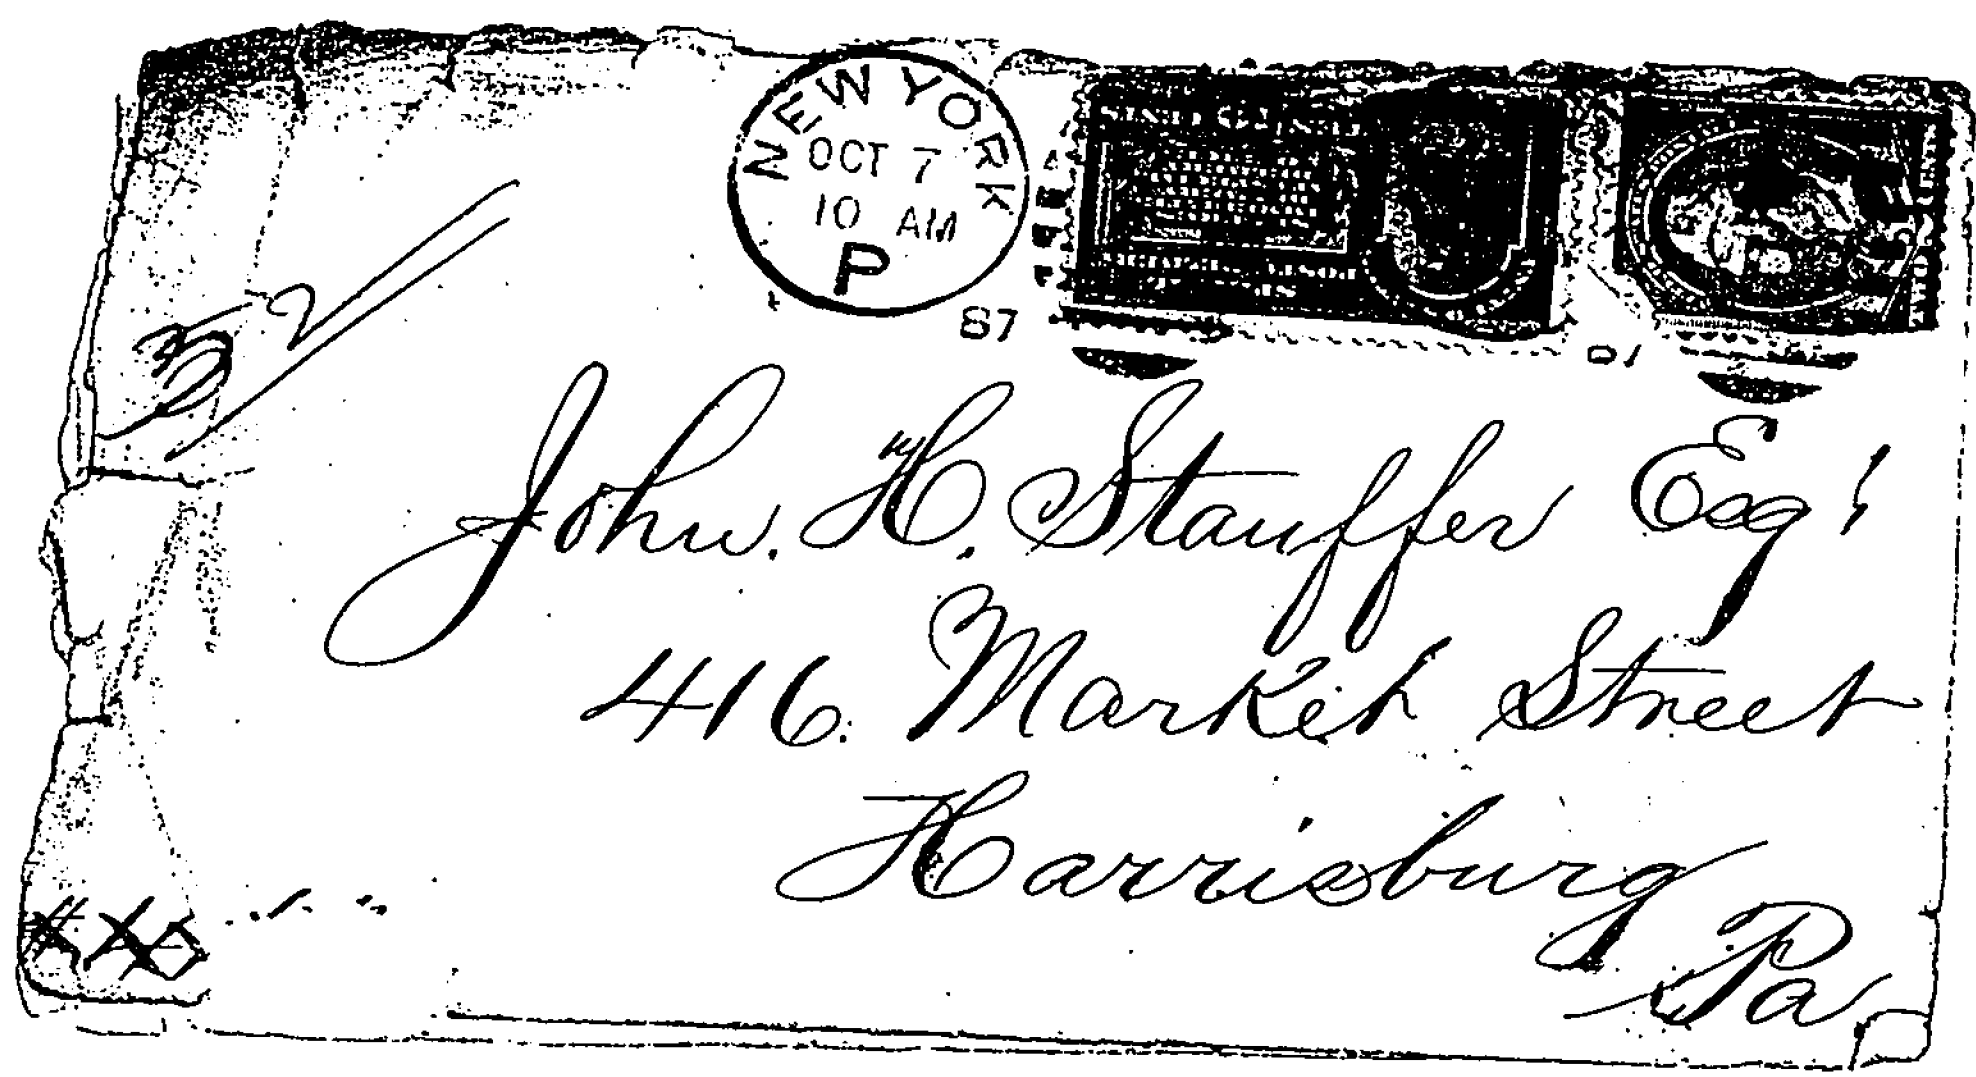 NEW YORK
OCT 7
10 AM
P
87
John. H. Stauffer Esq
416. Market Street
Harrisburg
Pa